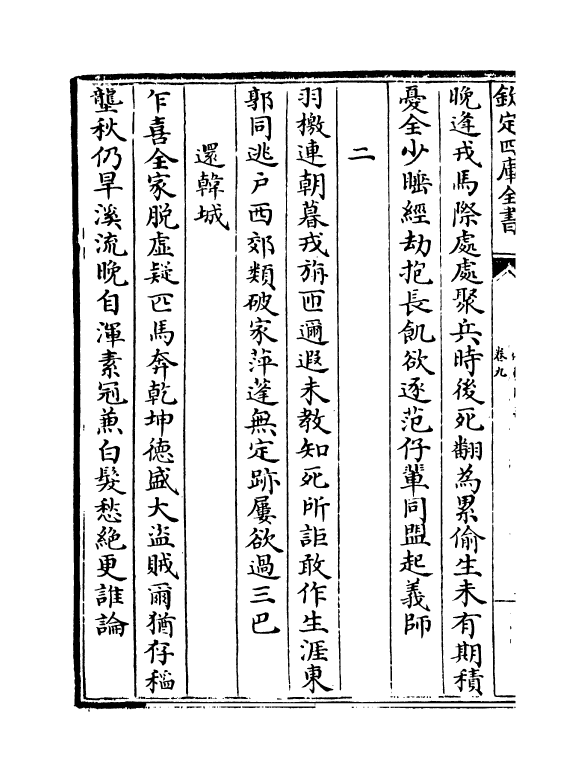 欽定四庫全書
卷九
晚逢戎馬際處處聚兵時後死翻為累偷生未有期積
憂全少睡經劫抱長飢欲逐范仔輩同盟起義師
二
羽檄連朝暮戎旃匝邇遐未教知死所詎敢作生涯東
郭同逃户西郊類破家萍蓬無定跡屢欲過三巴
還韓城
乍喜全家脱虚疑匹馬奔乾坤德盛大盜賊爾猶存稻
壟秋仍旱溪流晚自渾素冠兼白髮愁絶更誰論